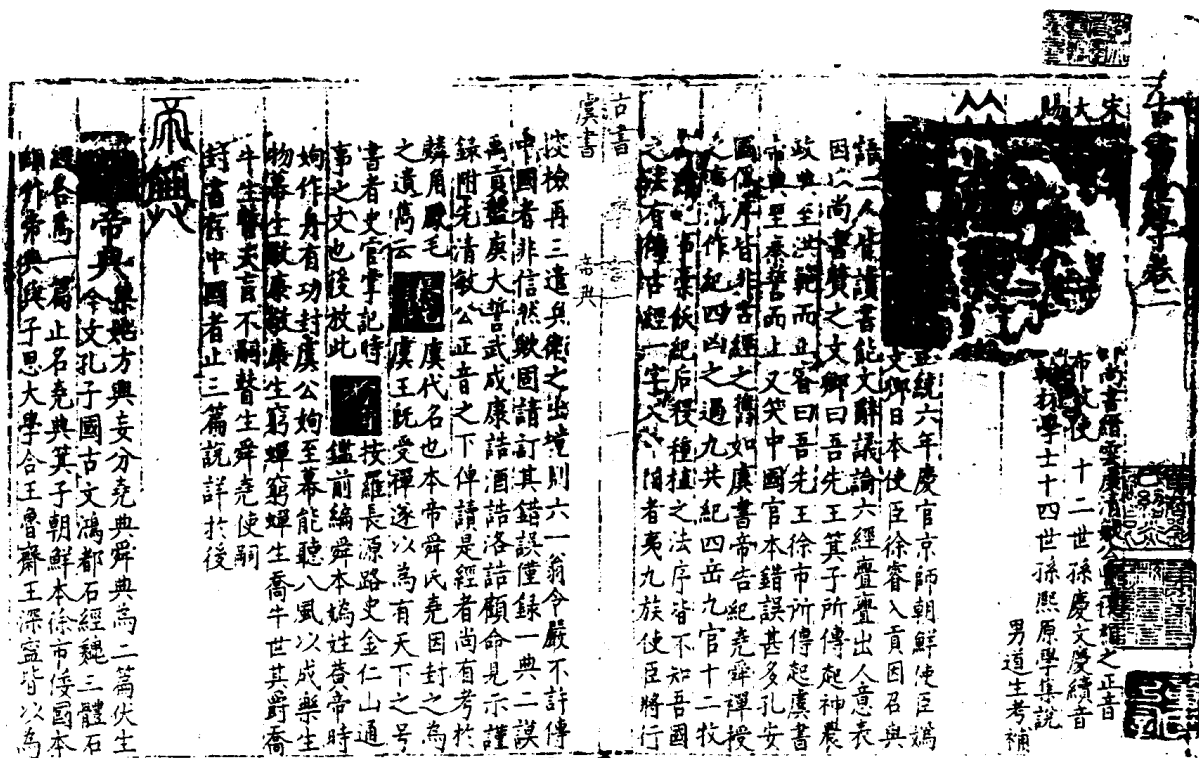 古書世學卷一
宋 尚書縉雲 清敏公 稷相之正音
大 布政使 十二世孫慶文慶續音
賜 翰林學士十四世孫熙原學集說
男道生考補
正統六年慶官京師朝鮮使臣媯
文卿日本使臣徐睿入貢因召與
語二人皆讀書能文辭議論六經亹亹出人意表
因以尚書贊之文卿曰吾先王箕子所傳起神農
政典至洪範而止睿曰吾先王徐市所傳起虞書
帝典至秦誓而止又笑中國官本錯誤甚多孔安
國偽序皆非古經之舊如虞書帝告紀堯舜禪授
之 作紀四凶之過九共紀四岳九官十二牧
事稾飫紀后稷種植之法序皆不知吾國
之法有傳古經一字入 者夷九族使臣將行
古書
虞書 帝典
搜檢再三遣兵衛之出境則六一翁令嚴不許傳
中國者非信然歟固請訂其錯誤僅錄一典二謨
禹貢盤庚大誥武成康誥酒誥洛誥顧命見示謹
錄附先清敏公正音之下俾讀是經者尚有考於
麟角鳳毛 虞代名也本帝舜氏堯因封之為
之遺雋云 虞王既受禪遂以為有天下之号
書者史官掌記時 按羅長源路史金仁山通
事之文也後放此 鑑前編舜本媯姓黃帝時
姁作身有功封虞公姁至幕能聽八風以成樂生
物幕生敬康敬康生窮蟬窮蟬生喬牛世其爵喬
牛生瞽叟言不嗣瞽生舜堯使嗣
封書存中國者止三篇說詳於後
帝典
帝典 集姚方興妄分堯典舜典為二篇伏生
今文孔子國古文鴻都石經魏三體石
經各為一篇止名堯典箕子朝鮮本徐市倭國本
作帝典與子思大學合王魯齋王深寧皆以為